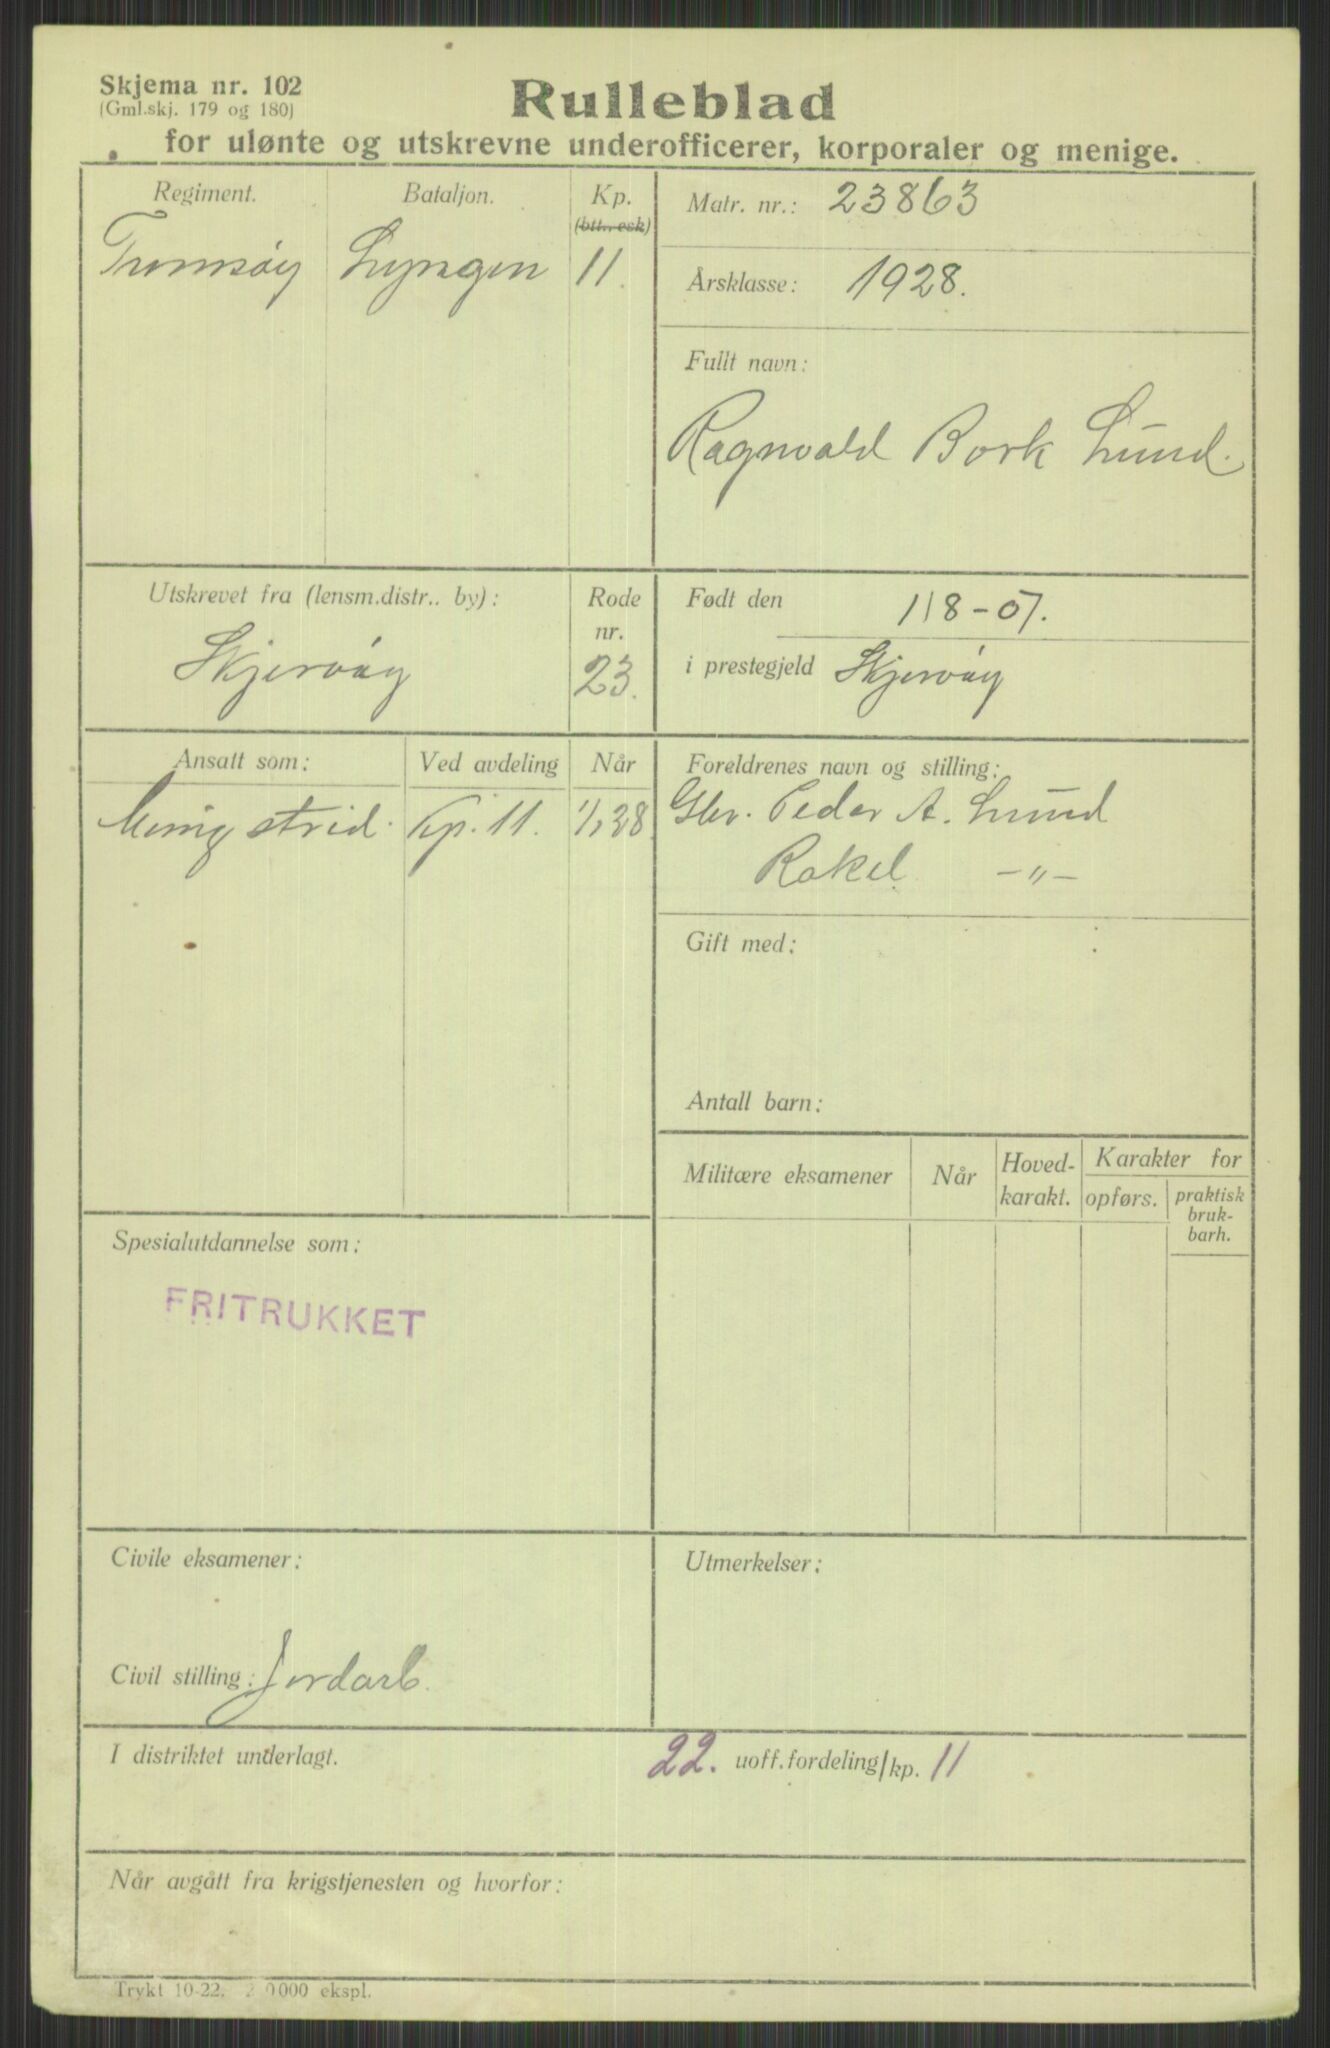 Skjema nr. 102
(Gml.skj. 179 og 180)
Rulleblad
for ulønte og utskrevne underofficerer, korporaler og menige.
Regiment. Bataljon. Kp.
(btt., esk)
Tromsøy Lyngen 11.
Matr. nr.: 23863
Årsklasse: 1928.
Fullt navn:
Ragnvald Bork Lund.
Utskrevet fra (lensm.distr.. by): Rode
nr.
Skjervøy 23.
Født den 1/8-07.
i prestegjeld Skjervøy
Ansatt som: Ved avdeling Når
Menig strid. Kp. 11. 1/1 28.
Foreldrenes navn og stilling:
Gbr. Peder A. Lund
Rakel -"-
Gift med:
Antall barn:
Militære eksamener Når Hoved-
karakt. Karakter for
opførs. praktisk
bruk-
barh.
Spesialutdannelse som:
FRITRUKKET
Civile eksamener:
Utmerkelser:
Civil stilling: Jordarb.
I distriktet underlagt. 22. uoff.fordeling/kp. 11
Når avgått fra krigstjenesten og hvorfor:
Trykt 10-22. 000 ekspl.